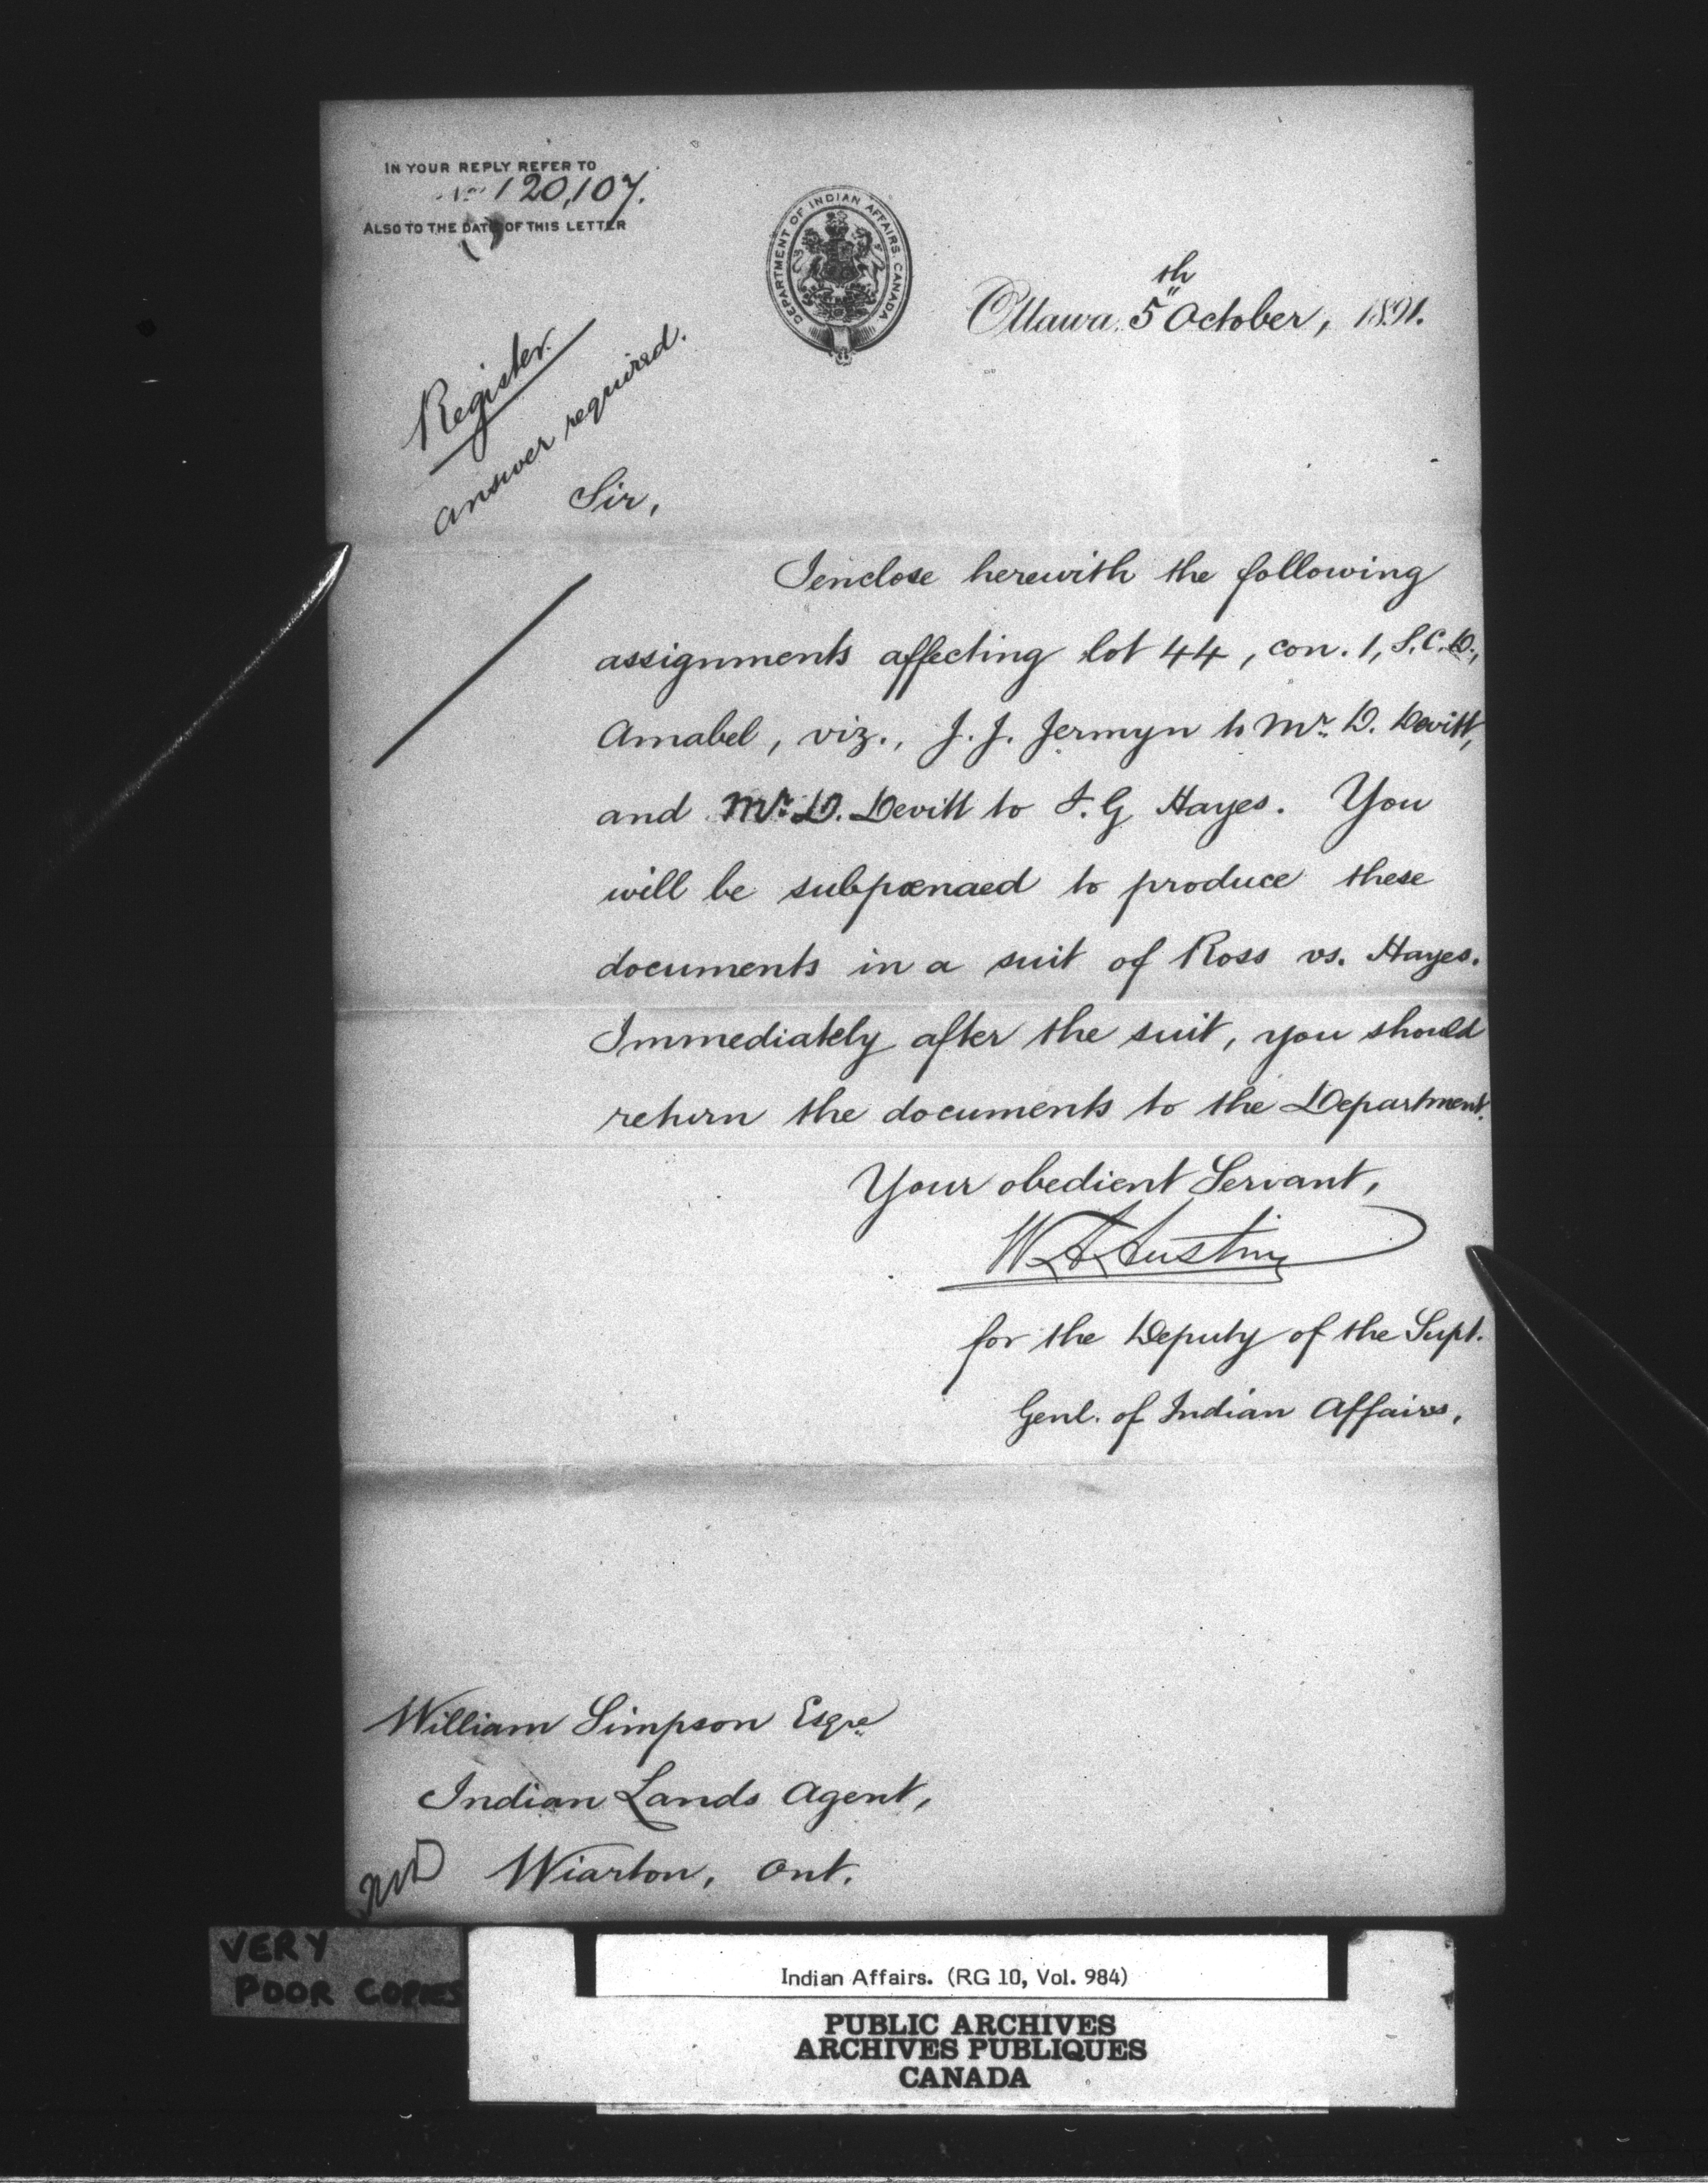 IN YOUR REPLY REFER TO
No 120,107.
ALSO TO THE DATE OF THIS LETTER
DEPARTMENT OF INDIAN AFFAIRS CANADA
Ottawa, 5th October, 1891.
Register.
Answer required.
Sir,
I enclose herewith the following
assignments affecting lot 44, con. 1, S.C.D.,
Amabel, viz., J. J. Jermyn to Mr. D. Devitt,
and Mr. D. Devitt to F. G Hayes. You
will be subpœnaed to produce these
documents in a suit of Ross vs. Hayes.
Immediately after the suit, you should
return the documents to the Department.
Your obedient Servant,
W A Austin
for the Deputy of the Supt.
Genl. of Indian Affairs.
William Simpson Esqre
Indian Lands Agent,
Wiarton, Ont.
VERY
POOR COPIES
Indian Affairs. (RG 10, Vol. 984)
PUBLIC ARCHIVES
ARCHIVES PUBLIQUES
CANADA